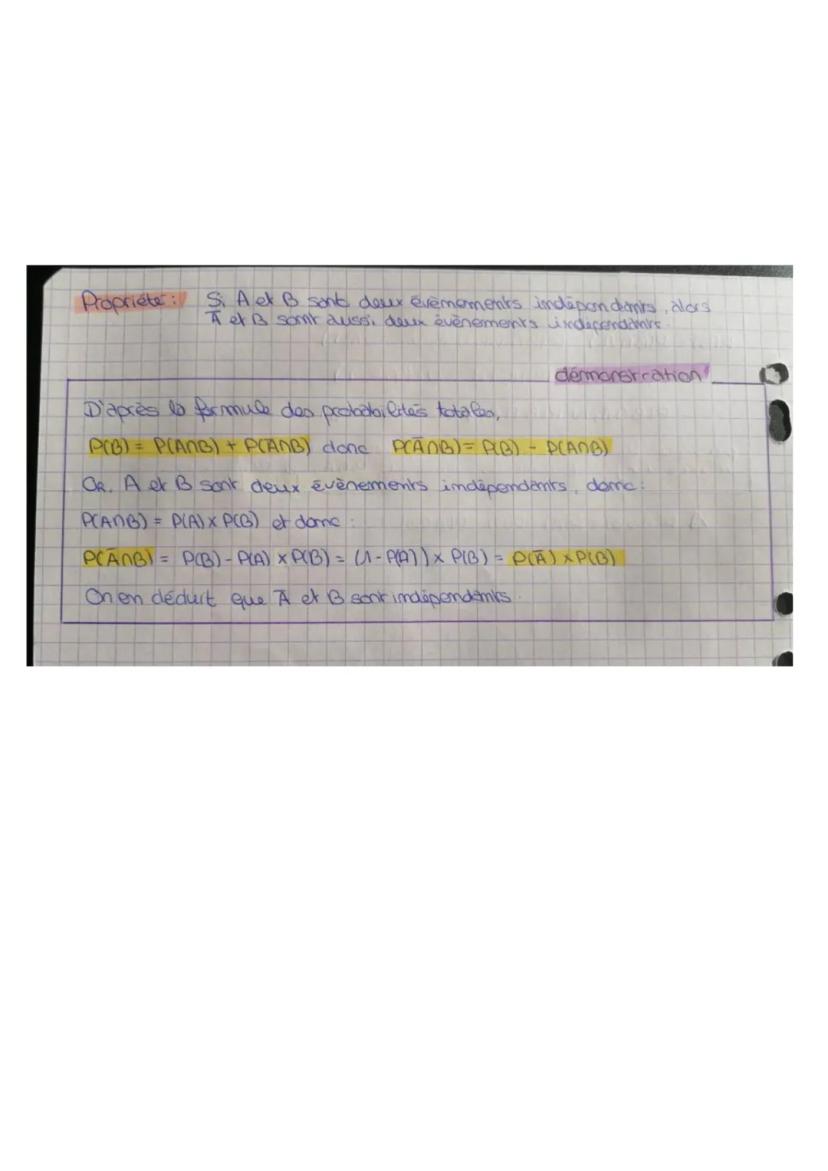 Propriété : Si A et B sont deux évènements indépendants, alors
Ā et B sont aussi deux évènements indépendants.
démonstration
D'après la formule des probabilités totales,
P(B) = P(A∩B) + P(Ā∩B) donc P(Ā∩B) = P(B) - P(A∩B)
OR, A et B sont deux évènements indépendants, donc :
P(A∩B) = P(A) x P(B) et donc :
P(Ā∩B) = P(B) - P(A) x P(B) = (1 - P(A)) x P(B) = P(Ā) x P(B)
On en déduit que Ā et B sont indépendants.